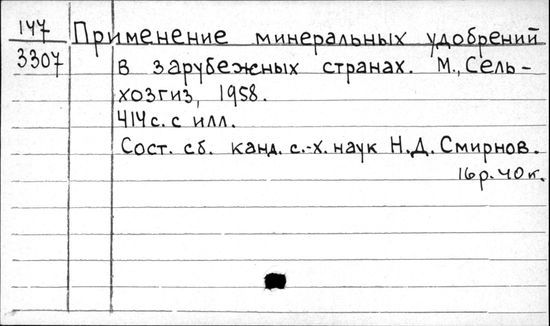 147
3307
Применение минеральных удобрений
в зарубежных странах. М., Сель-
хозгиз, 1958.
414 с. с илл.
Сост. сб. канд. с.-х. наук Н.Д. Смирнов.
16 р. 40 к.